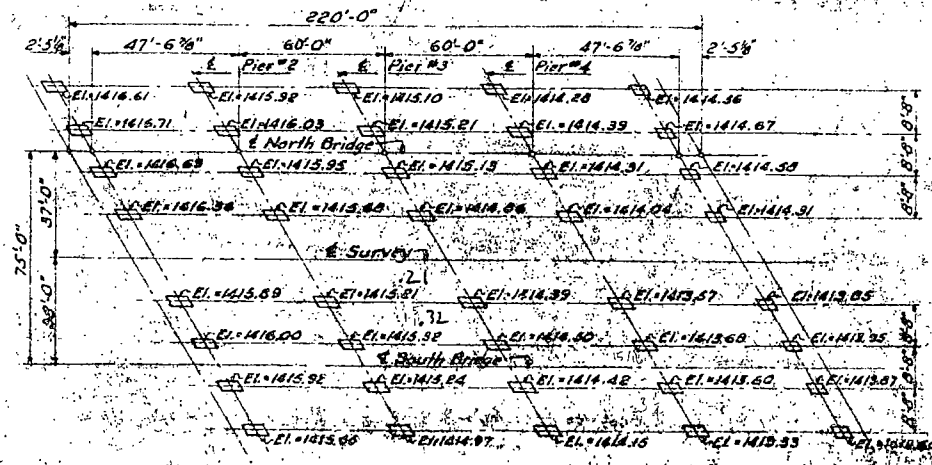 220'-0"
2'-5⅛" 47'-6⅞" 60'-0" 60'-0" 47'-6⅞" 2'-5⅛"
℄ Pier #2 ℄ Pier #3 ℄ Pier #4
El.=1416.61 El.=1415.92 El.=1415.10 El.=1414.28
El.=1416.71 El.=1416.03 El.=1415.21 El.=1414.39 El.=1414.67
℄ North Bridge
El.=1415.95 El.=1415.13 El.=1414.31 El.=1414.58
El.=1415.68 El.=1414.86 El.=1414.04 El.=1414.31
8'-8"
8'-8"
8'-8"
75'-0"
37'-0"
℄ Survey
21
El.=1415.89 El.=1415.21 El.=1414.39 El.=1413.57 El.=1413.85
.32
El.=1416.00 El.=1415.32 El.=1414.50 El.=1413.68 El.=1413.95
℄ South Bridge
El.=1415.92 El.=1415.24 El.=1414.42 El.=1413.60 El.=1413.87
El.=1414.97 El.=1414.15 El.=1413.33
8'-8"
8'-8"
8'-8"